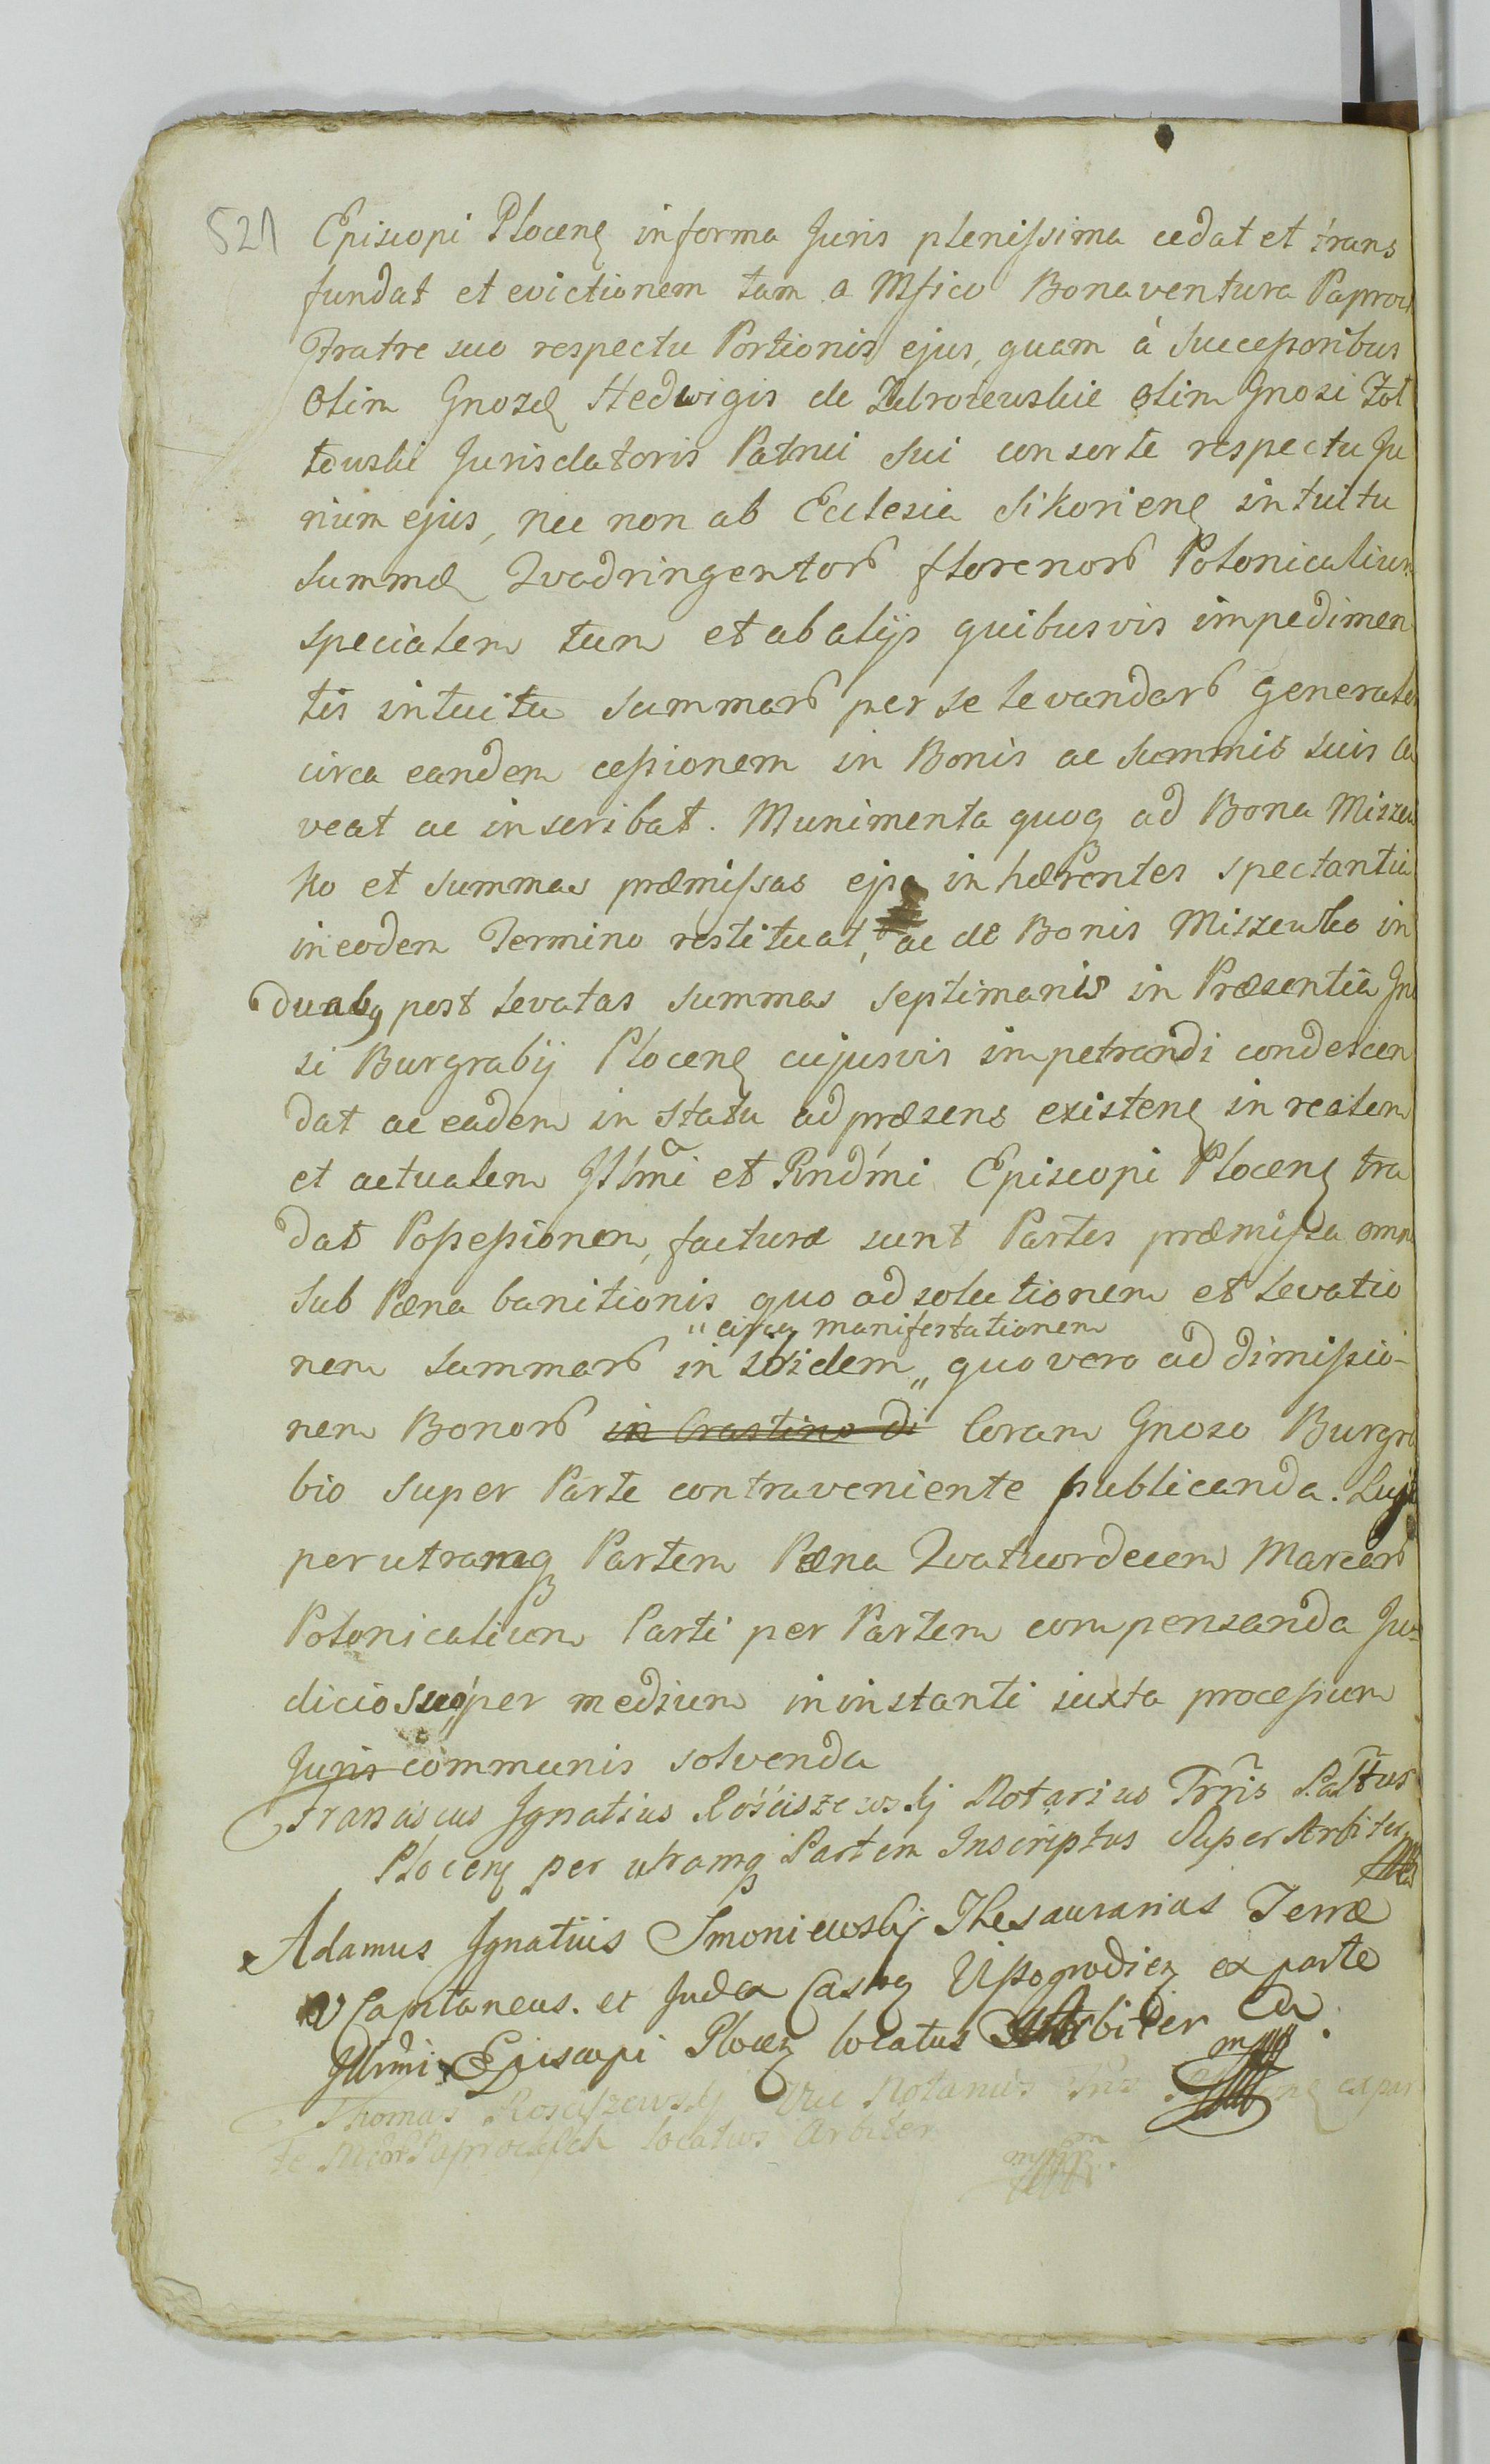 521
Episcopi Plocens in forma Juris plenissima cedat et trans
fundat et evictionem tam a Mfico Bonaventura Paproc
Fratre suo respectu Portionis ejus, quam à Successoribus
olim Gnosæ Hedwigis de olim Gnosi Zol
towski Jurisdatoris Patrui sui consorte respectu Ju
rium ejus, nec non ab Ecclesia Sikoriens intuitu
summæ Quadringentorum florenorum Polonicalium
specialem tum et ab alijs quibusvis impedimen
tis intuitu summarum per se levandarum generalem
circa eandem cessionem in Bonis ac summis suis ca
veat ac inscribat. Munimenta quoq ad Bona Miszew
ko et summas præmissas ejs inhærentes spectantia
in eodem Termino restituat, ac de Bonis Miszewko in
duabq post levatas summas septimanis in Præsentia Gno
si Burgrabij Plocens cujusvis impetrandi condescen
dat ac eadem in statu ad præsens existens in realem
et actualem Illmi et Rndmi Episcopi Plocens tra
dat Possessionem, facturæ sunt Partes præmissa omn
sub Pæna banitionis quo ad solutionem et levatio
" circa manifestationem
nem summarum in ibidem " quo vero ad dimissio-
nem Bonorum in Crastino di Coram Gnoso Burgra
bio super Parte contraveniente publicanda. Luit
per utramq Partem Pæna Quatuordecem Marcarum
Polonicalium Parti per Partem compensanda Ju-
dicio suo per medium in instanti iuxta processum
Juris communis solvenda
Franciscus Ignatius Rościszewskj Notarius Trris Palttus
Plocens per utramq Partem Inscriptus Super Arbiter
Adamus Ignatius Smoniewskj Thesaurarius Terræ
V Capitaneus. et Judex Castrs Vissogrodiens ex parte
Illrmi Episcopi Plocens locatus Arbiter
mp
Thomas Rosciszewskj Vice Notarius ex par
te Paprockich locatus Arbiter
mp